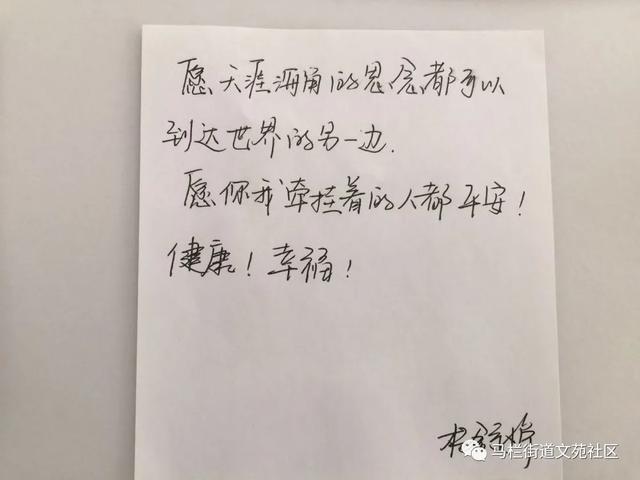 愿天涯海角的思念都可以
到达世界的另一边.
愿你我牵挂着的人都平安!
健康!幸福!
马栏街道文苑社区